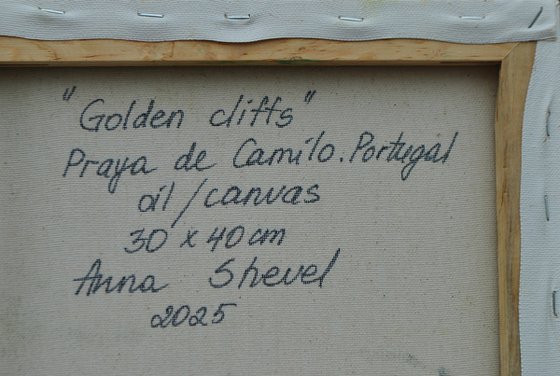 "Golden cliffs"
Praya de Camilo. Portugal
oil/canvas
30 x 40 cm
Anna Shevel
2025